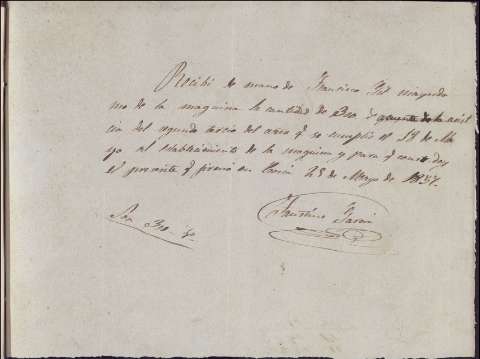 Recibi de mano de Francisco Gil mayordo
mo de la maquina la cantidad de 320 rs de la asist
cia del segundo tercio del año q se cumplio el 18 de Ma
yo al establecimiento de la maquina y para q conste doy
el presente q firmo en 25 de Mayo de 1857.
Faustino
Son 320 rs